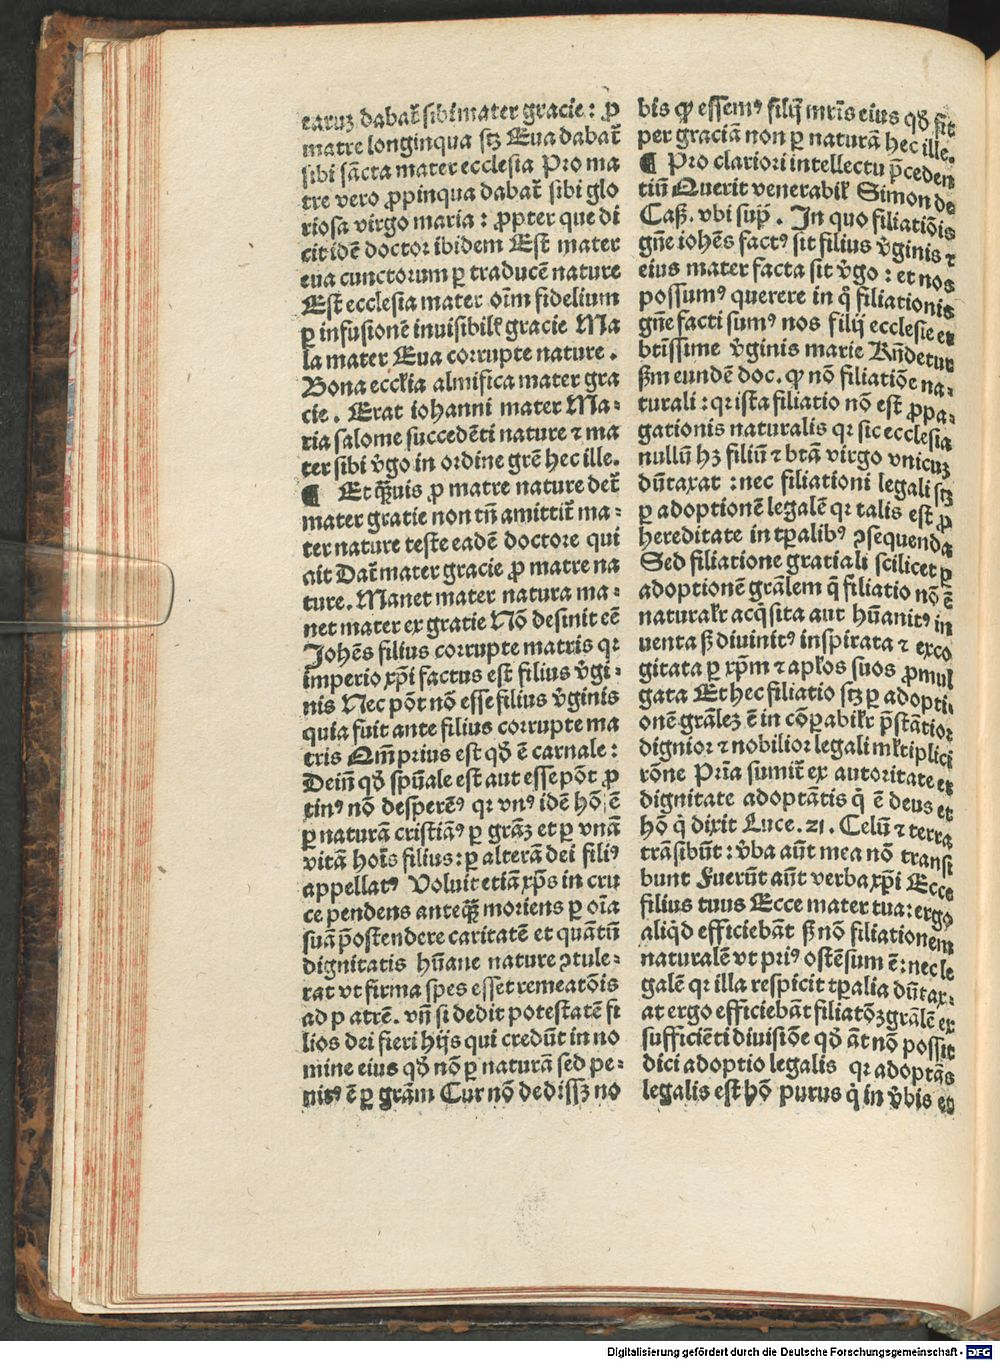 earuꝫ dabat᷑ sibi mater gracie: ꝓ
matre longinqua sꝫ Eua dabat᷑
sibi sācta mater ecclesia Pro ma
tre vero ꝓpinqua dabat᷑ sibi glo
riosa virgo maria: ꝓpter que di
cit idē doctor ibidem Est mater
eua cunctorum ꝑ traducē nature
Est ecclesia mater oīm fidelium
ꝑ infusionē inuisibilꝭ gracie Ma
la mater Eua corrupte nature.
Bona eccl̓ia almifica mater gra
cie. Erat iohanni mater Ma⸗
ria salome succedēti nature ⁊ ma
ter sibi v̓go in ordine grē hec ille.
¶ Et qꝫuis ꝓ matre nature det᷑
mater gratie non tn̄ amittit᷑ ma⸗
ter nature teste eadē doctore qui
ait Dat᷑ mater gracie ꝓ matre na
ture. Manet mater natura ma⸗
net mater ex gratie Nō desinit eē
Johēs filius corrupte matris qꝛ
imperio xp̄i factus est filius v̓gi⸗
nis Nec pōt nō esse filius v̓ginis
quia fuit ante filius corrupte ma
tris Qm̄ prius est qđ ē carnale:
Dein̄ qđ spūale est aut esse pōt ꝓ
tinꝰ nō desperēꝰ qꝛ vnꝰ idē hō ē
ꝑ naturā cristiāꝰ ꝑ grāꝫ et ꝑ vnā
vitā hoīs filius: ꝑ alterā dei filiꝰ
appellatꝰ Voluit etiā xp̄s in cru
ce pendens anteqꝫ moriens ꝑ oīa
suā p̄ostendere caritatē et quātū
dignitatis hūane nature ꝯtule⸗
rat vt firma spes esset remeatōis
ad p atrē. vn̄ si dedit potestatē fi
lios dei fieri hijs qui credūt in no
mine eius qđ nō ꝑ naturā sed pe⸗
nitꝰ ē ꝑ grām Cur nō dedissꝫ no
bis ꝙ essemꝰ filij mr̄is eius qđ sit
per graciā non ꝑ naturā hec ille.
¶ Pro clariori intellectu p̄ceden
tiū Querit venerabil̓ Simon de
Caß. vbi sup̄. In quo filiatiōis
gn̄e iohēs factꝰ sit filius v̓ginis ⁊
eius mater facta sit v̓go: et nos
possumꝰ querere in q̊ filiationis
gn̄e facti sumꝰ nos filij ecclesie et
btīssime v̓ginis marie Rn̄detur
ßm eundē doc. ꝙ nō filiatiōe na⸗
turali: qꝛ ista filiatio nō est ꝓpa⸗
gationis naturalis qꝛ sic ecclesia
nullū hꝫ filiū ⁊ btā virgo vnicuꝫ
dūtaxat: nec filiationi legali sꝫ
ꝑ adoptionē legalē qꝛ talis est ꝓ
hereditate in tꝑalibꝰ ꝯsequenda
Sed filiatione gratiali scilicet ꝑ
adoptionē grālem q̄ filiatio nō ē
naturalr̓ acq̇sita aut hūanitꝰ in
uenta ß diuinitꝰ inspirata ⁊ exco
gitata ꝑ xp̄m ⁊ apl̓os suos ꝓmul
gata Et hec filiatio sꝫ ꝑ adopti⸗
onē grāleꝫ ē in cōꝑabilr̓ p̄stātior
dignior ⁊ nobilior legali ml̓tiplici
rōne Pria sumit᷑ ex autoritate et
dignitate adoptātis q̇ ē deus et
hō q̇ dixit Luce. 21. Celū ⁊ terra
trāsibūt: v̓ba aūt mea nō transi
bunt Fuerūt aūt verba xp̄i Ecce
filius tuus Ecce mater tua: ergo
aliq̇d efficiebāt ß nō filiationem
naturalē vt priꝰ ostēsum ē: nec le
galē qꝛ illa respicit tꝑalia dūtax⸗
at ergo efficiebāt filiatōꝫ grālē ex
sufficiēti diuisiōe qđ āt nō possit
dici adoptio legalis qꝛ adoptās
legalis est hō purus q̇ in v̓bis et
Digitalisierung gefördert durch die Deutsche Forschungsgemeinschaft - DFG